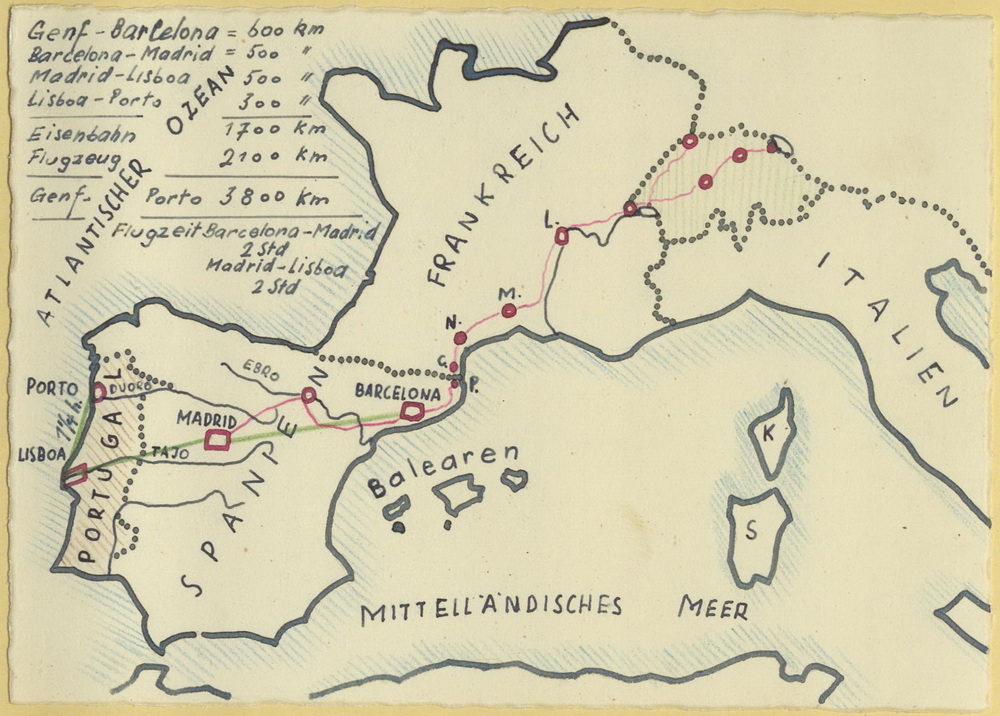 Genf-Barcelona = 600 km
Barcelona-Madrid = 500 "
Madrid-Lisboa 500 "
Lisboa-Porto 300 "
Eisenbahn 1700 km
Flugzeug 2100 km
Genf- Porto 3800 km
Flugzeit Barcelona-Madrid
2 Std
Madrid-Lisboa
2 Std
ATLANTISCHER OZEAN
FRANKREICH
ITALIEN
L.
M.
N.
G.
P.
EBRO
BARCELONA
PORTO
DUORO
MADRID
1 1/4 h.
LISBOA
TAJO
PORTUGAL
SPANPEN
Balearen
K
S
MITTELLÄNDISCHES MEER